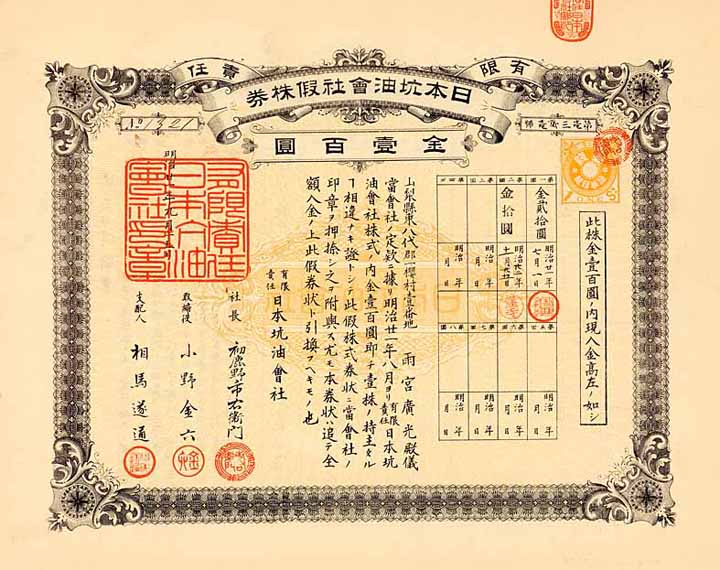 有限責任
日本坑油會社假株券
第壱三弐壱號
No 1321
金壹百圓
此株金壹百圓ノ内現入金高左ノ如シ
第一回 金貳拾圓 明治廿一年七月一日
第二回 金拾圓
第三回 明治 年 月 日
第四回 明治 年 月 日
第五回 明治 年 月 日
第六回 明治 年 月 日
第七回 明治 年 月 日
第八回 明治 年 月 日
山梨縣東八代郡 櫻村壹番地 雨宮廣光殿儀
當會社ノ定欵ニ據リ明治廿一年八月ヨリ有限責任日本坑
油會社株式ノ内金壹百圓即チ壹株ノ持主タル
ヿ相違ナキ證トシテ此假株式券状ニ當會社ノ
印章ヲ押捺シ之ヲ附與ス尤モ本券状ハ追テ全
額入金ノ上此假券状ト引換フヘキモノ也
有限責任 日本坑油會社
社長 初鹿野市右衛門
取締役 小野金六
支配人 相馬遂通
有限責任日本坑油會社之章